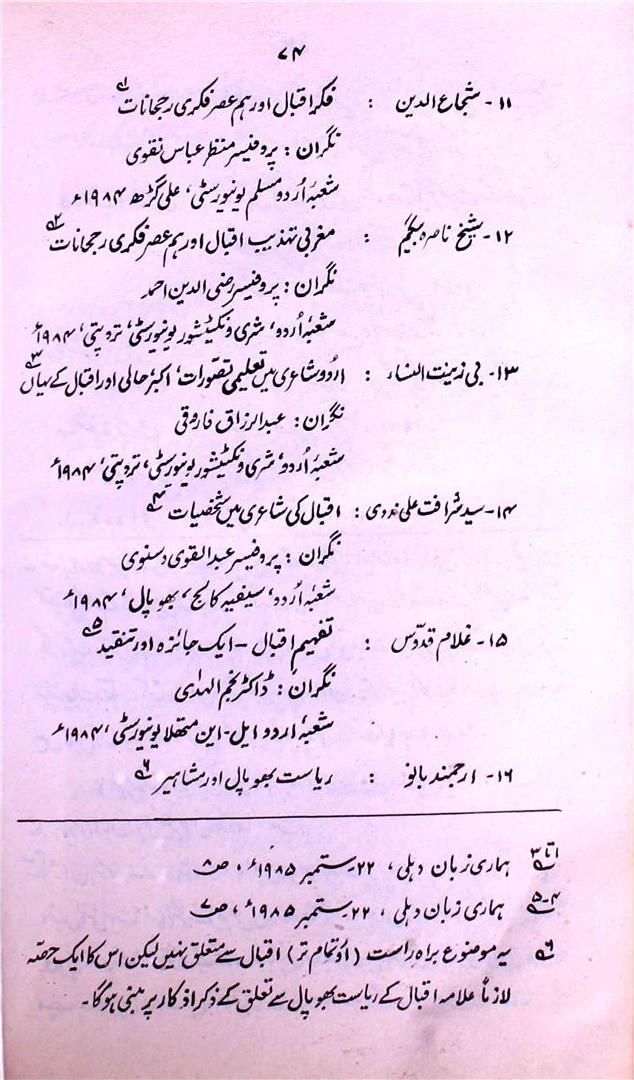 ۷۴
۱۱۔ شجاع الدین : فکرِ اقبال اور ہم عصر فکری رجحانات ؂۱
نگران : پروفیسر منظر عباس نقوی
شعبۂ اُردو مسلم یونیورسٹی، علی گڑھ ۱۹۸۴ء
۱۲۔ شیخ ناصرہ بیگم : مغربی تہذیب اقبال اور ہم عصر فکری رجحانات ؂۲
نگران : پروفیسر رضی الدین احمد
شعبۂ اُردو، شری ونکٹیشور یونیورسٹی، تروپتی، ۱۹۸۴ء
۱۳۔ بی زینت النساء : اردو شاعری میں تعلیمی تصورات، اکبر حالی اور اقبال کے یہاں ؂۳
نگران : عبدالرزاق فاروقی
شعبۂ اُردو، شری ونکٹیشور یونیورسٹی، تروپتی، ۱۹۸۴ء
۱۴۔ سید شرافت علی ندوی : اقبال کی شاعری میں شخصیات ؂۴
نگران : پروفیسر عبدالقوی دسنوی
شعبۂ اُردو، سیفیہ کالج، بھوپال، ۱۹۸۴ء
۱۵۔ غلام قدّوس : تفہیمِ اقبال ۔ ایک جائزہ اور تنقید ؂۵
نگران : ڈاکٹر نجم الہدیٰ
شعبۂ اردو ایل۔ این متھلا یونیورسٹی، ۱۹۸۴ء
۱۶۔ ارجمند بانو : ریاست بھوپال اور مشاہیر ؂۶
؂۱ تا ۳ ہماری زبان دہلی، ۲۲۔ ستمبر ۱۹۸۵ء، ص ۸
؂۴۔۵ ہماری زبان دہلی، ۲۲۔ ستمبر ۱۹۸۵ء، ص ۷
؂۶ یہ موضوع براہِ راست (اور تمام تر) اقبال سے متعلق نہیں لیکن اس کا ایک حصّہ
لازماً علامہ اقبال کے ریاست بھوپال سے تعلق کے ذکر اذکار پر مبنی ہوگا۔